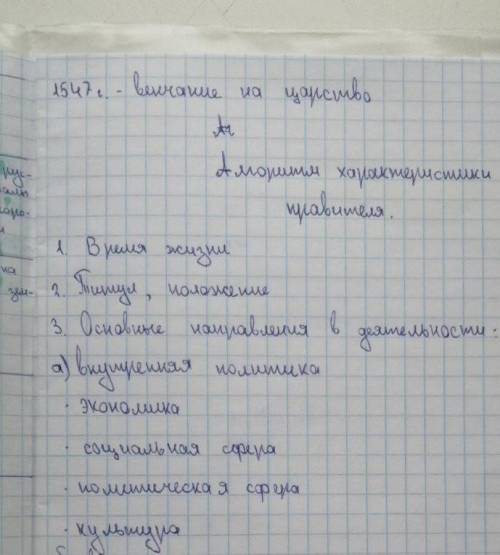 1547 г. - венчание на царство
Ал
Алгоритм характеристики
правителя.
1. Время жизни
2. Титул, положение
3. Основные направления в деятельности:
а) внутренняя политика
· экономика
· социальная сфера
· политическая сфера
· культура
на